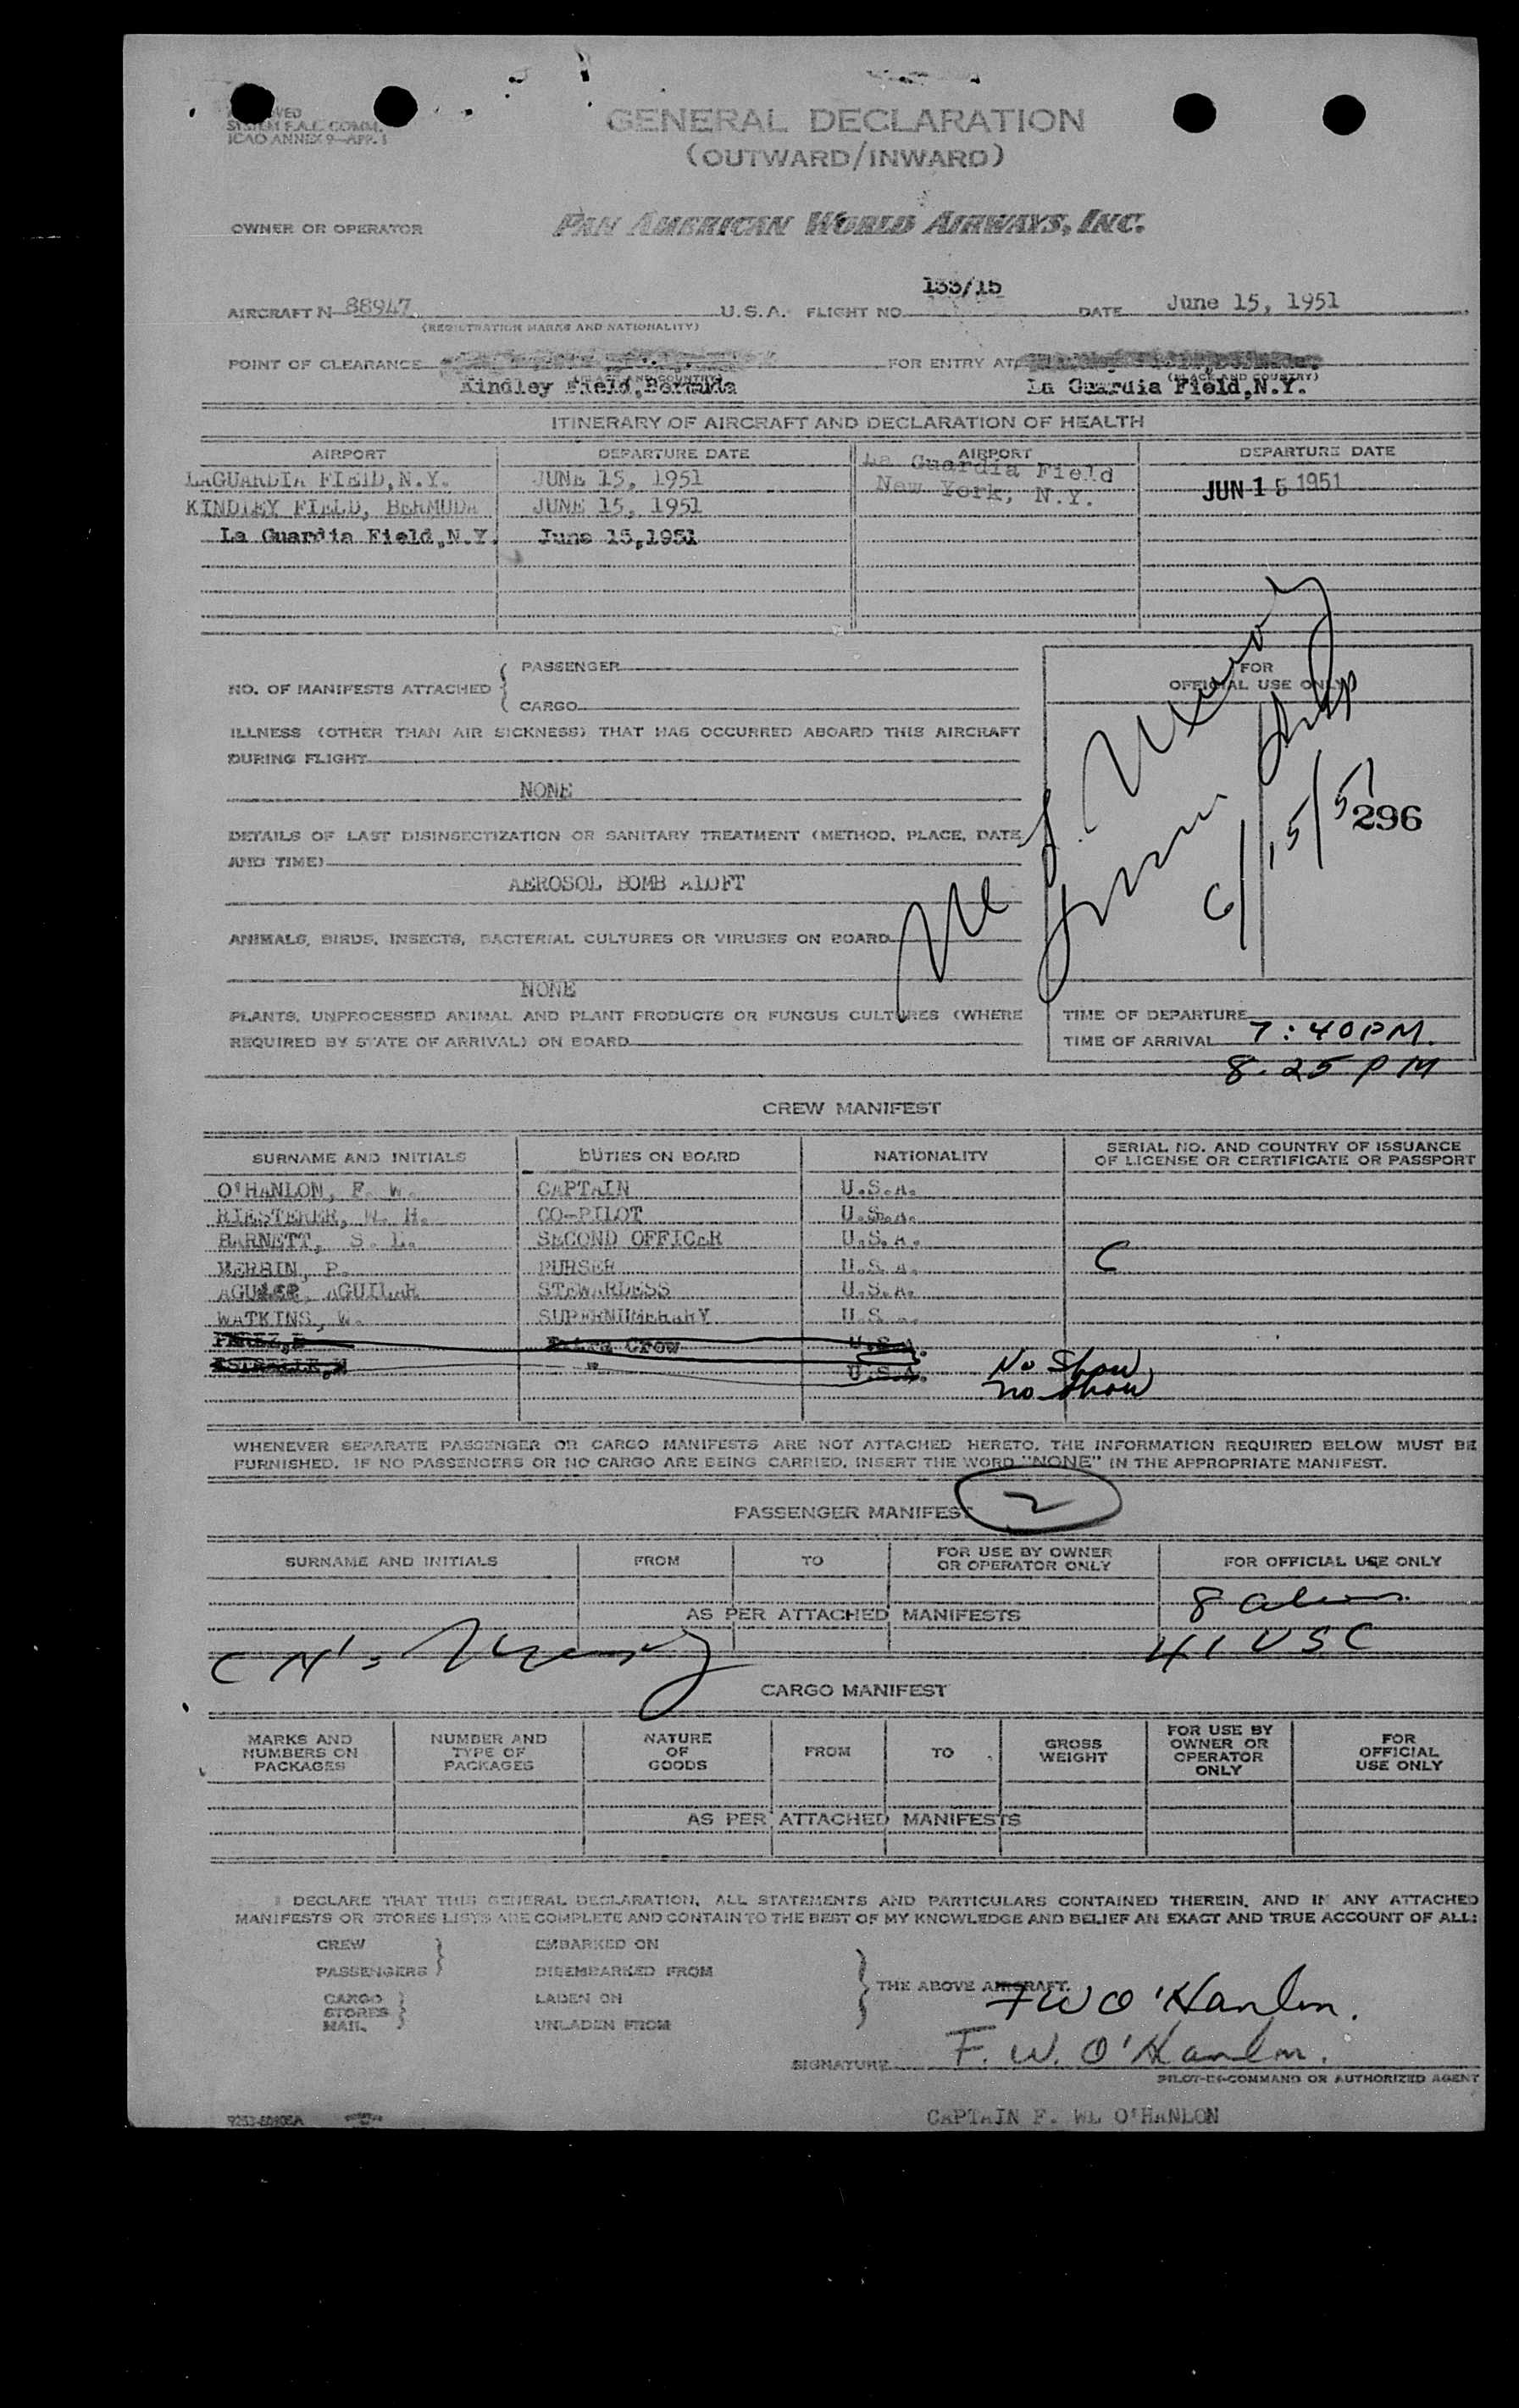 SYSTEM F.A.L. COMM.
ICAO ANNEX 9—APP. 1
GENERAL DECLARATION
(OUTWARD/INWARD)
OWNER OR OPERATOR PAN AMERICAN WORLD AIRWAYS, INC.
133/15
AIRCRAFT N 88947 U.S.A. FLIGHT NO. DATE June 15, 1951
(REGISTRATION MARKS AND NATIONALITY)
POINT OF CLEARANCE FOR ENTRY AT
(PLACE AND COUNTRY) (PLACE AND COUNTRY)
Kindley Field,Bermuda La Guardia Field,N.Y.
ITINERARY OF AIRCRAFT AND DECLARATION OF HEALTH
AIRPORT DEPARTURE DATE AIRPORT DEPARTURE DATE
LAGUARDIA FIELD,N.Y. JUNE 15, 1951 La Guardia Field
New York, N.Y. JUN 15 1951
KINDLEY FIELD, BERMUDA JUNE 15, 1951
La Guardia Field,N.Y. June 15,1951
NO. OF MANIFESTS ATTACHED { PASSENGER
CARGO
FOR
OFFICIAL USE ONLY
ILLNESS (OTHER THAN AIR SICKNESS) THAT HAS OCCURRED ABOARD THIS AIRCRAFT
DURING FLIGHT
NONE
6/15/51
296
DETAILS OF LAST DISINSECTIZATION OR SANITARY TREATMENT (METHOD, PLACE, DATE
AND TIME)
AEROSOL BOMB AlOFT
ANIMALS, BIRDS, INSECTS, BACTERIAL CULTURES OR VIRUSES ON BOARD
NONE
PLANTS, UNPROCESSED ANIMAL AND PLANT PRODUCTS OR FUNGUS CULTURES (WHERE
REQUIRED BY STATE OF ARRIVAL) ON BOARD
TIME OF DEPARTURE
TIME OF ARRIVAL 7:40PM.
8.25 PM
CREW MANIFEST
SURNAME AND INITIALS DUTIES ON BOARD NATIONALITY SERIAL NO. AND COUNTRY OF ISSUANCE
OF LICENSE OR CERTIFICATE OR PASSPORT
O'HANLON, F. W. CAPTAIN U.S.A.
RIESTERER, W. H. CO-PILOT U.S.A.
BARNETT, S. L. SECOND OFFICER U.S.A.
MERBIN, P. PURSER U.S.A. C
AGUILAR STEWARDESS U.S.A.
WATKINS, W. SUPERNUMERARY U.S.A.
PEREZ, Extra Crew U.S.A.
" U.S.A. No Show
no show
WHENEVER SEPARATE PASSENGER OR CARGO MANIFESTS ARE NOT ATTACHED HERETO, THE INFORMATION REQUIRED BELOW MUST BE
FURNISHED. IF NO PASSENGERS OR NO CARGO ARE BEING CARRIED, INSERT THE WORD "NONE" IN THE APPROPRIATE MANIFEST.
PASSENGER MANIFEST 2
SURNAME AND INITIALS FROM TO FOR USE BY OWNER
OR OPERATOR ONLY FOR OFFICIAL USE ONLY
8 aliens
AS PER ATTACHED MANIFESTS
41 USC
CARGO MANIFEST
MARKS AND
NUMBERS ON
PACKAGES NUMBER AND
TYPE OF
PACKAGES NATURE
OF
GOODS FROM TO GROSS
WEIGHT FOR USE BY
OWNER OR
OPERATOR
ONLY FOR
OFFICIAL
USE ONLY
AS PER ATTACHED MANIFESTS
I DECLARE THAT THIS GENERAL DECLARATION, ALL STATEMENTS AND PARTICULARS CONTAINED THEREIN, AND IN ANY ATTACHED
MANIFESTS OR STORES LISTS ARE COMPLETE AND CONTAIN TO THE BEST OF MY KNOWLEDGE AND BELIEF AN EXACT AND TRUE ACCOUNT OF ALL:
CREW EMBARKED ON
PASSENGERS DISEMBARKED FROM
CARGO LADEN ON
STORES
MAIL UNLADEN FROM
THE ABOVE AIRCRAFT.
F W O'Hanlon.
SIGNATURE F. W. O'Hanlon.
PILOT-IN-COMMAND OR AUTHORIZED AGENT
CAPTAIN F. WL O'HANLON